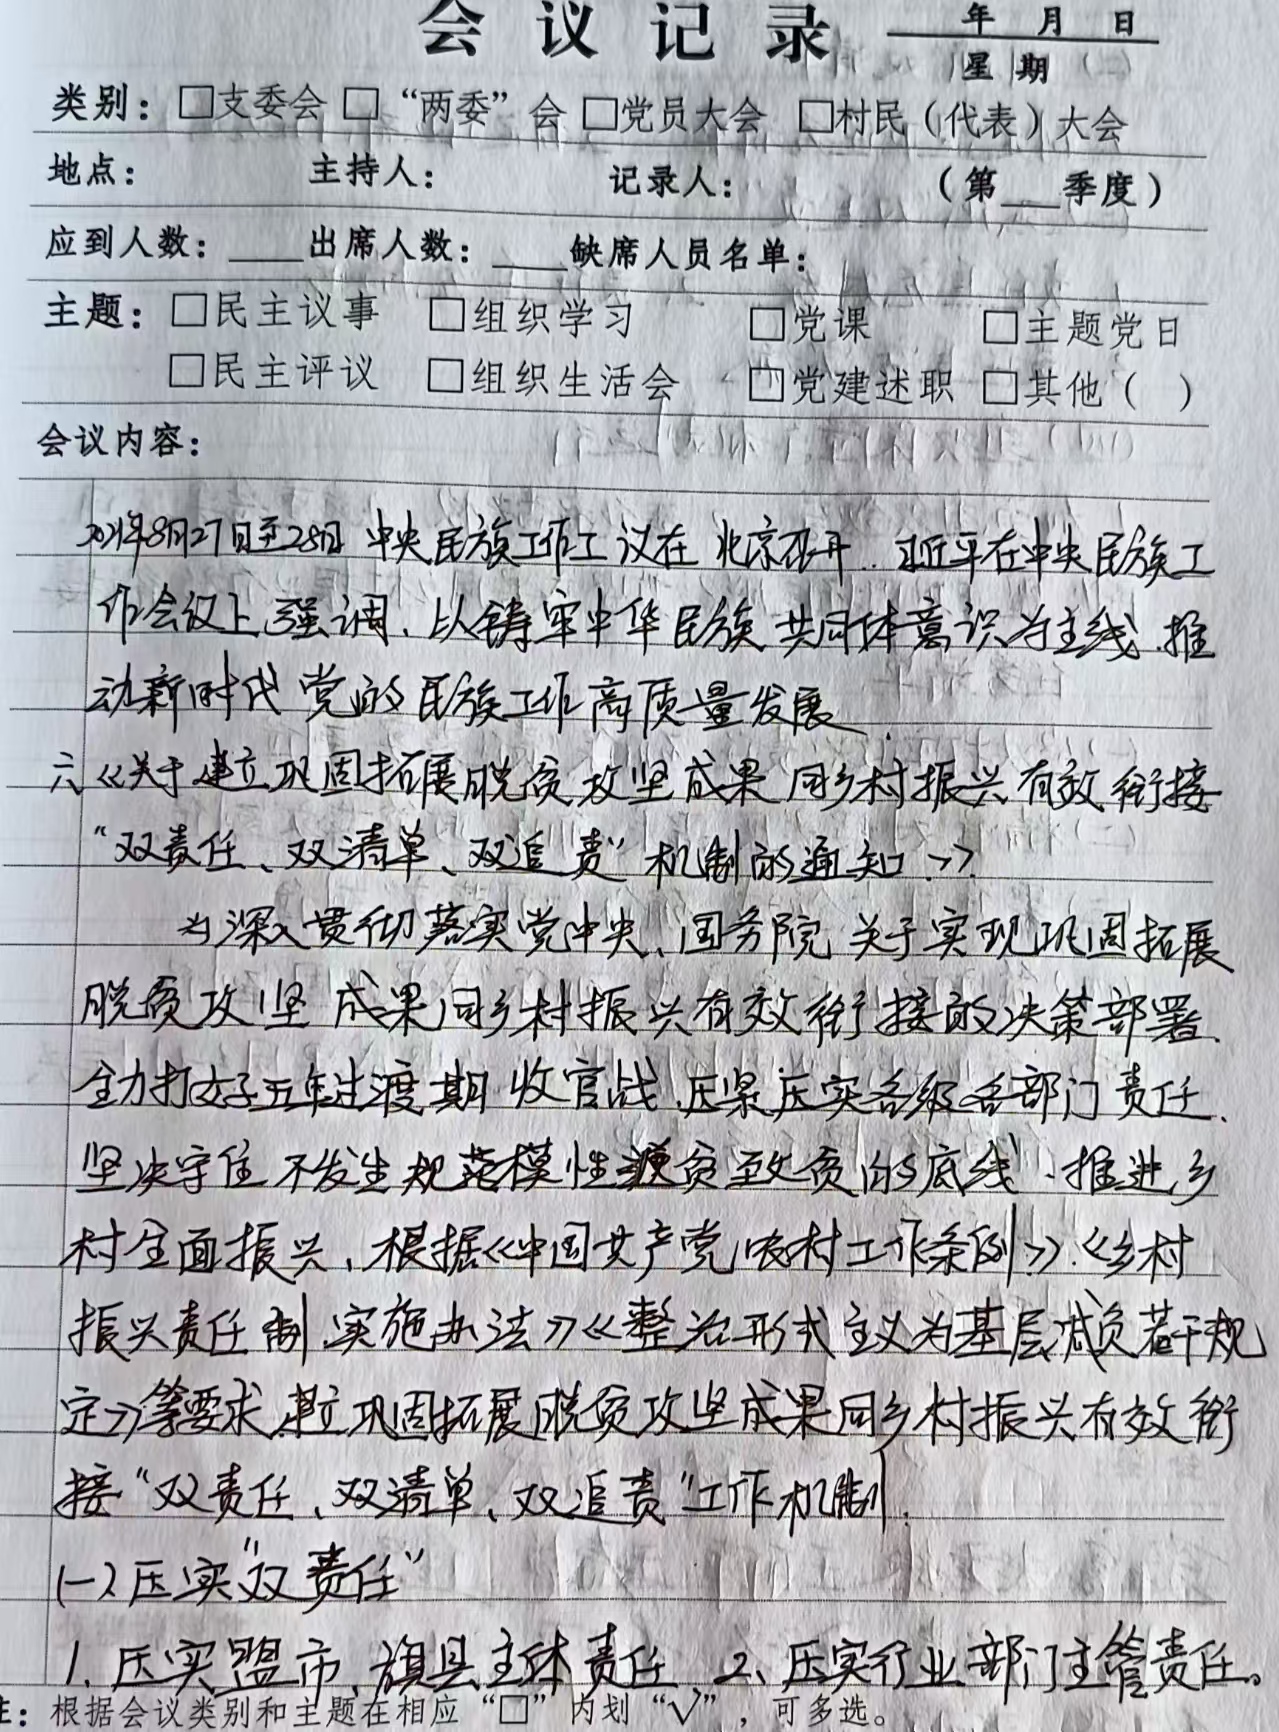 会议记录 年 月 日
星期
类别：□支委会 □“两委”会 □党员大会 □村民（代表）大会
地点： 主持人： 记录人： （第___季度）
应到人数：____出席人数：____缺席人员名单：
主题：□民主议事 □组织学习 □党课 □主题党日
□民主评议 □组织生活会 □党建述职 □其他（ ）
会议内容：
2021年8月27日至28日 中央民族工作工议在北京召开. 习近平在中央民族工
作会议上强调、以铸牢中华民族共同体意识为主线.推
动新时代党的民族工作高质量发展.
六《关于建立巩固拓展脱贫攻坚成果同乡村振兴有效衔接
“双责任、双清单、双追责”机制的通知》
为深入贯彻落实党中央、国务院关于实现巩固拓展
脱贫攻坚成果同乡村振兴有效衔接的决策部署.
全力打好五年过渡期收官战.压紧压实各级各部门责任.
坚决守住不发生规模性返贫致贫的底线.推进乡
村全面振兴、根据《中国共产党农村工作条例》.《乡村
振兴责任制实施办法》《整治形式主义为基层减负若干规
定》等要求.建立巩固拓展脱贫攻坚成果同乡村振兴有效衔
接“双责任、双清单、双追责”工作机制.
(一)压实“双责任”
1.压实盟市、旗县主体责任 2、压实行业部门主管责任。
注：根据会议类别和主题在相应“□”内划“√”，可多选。